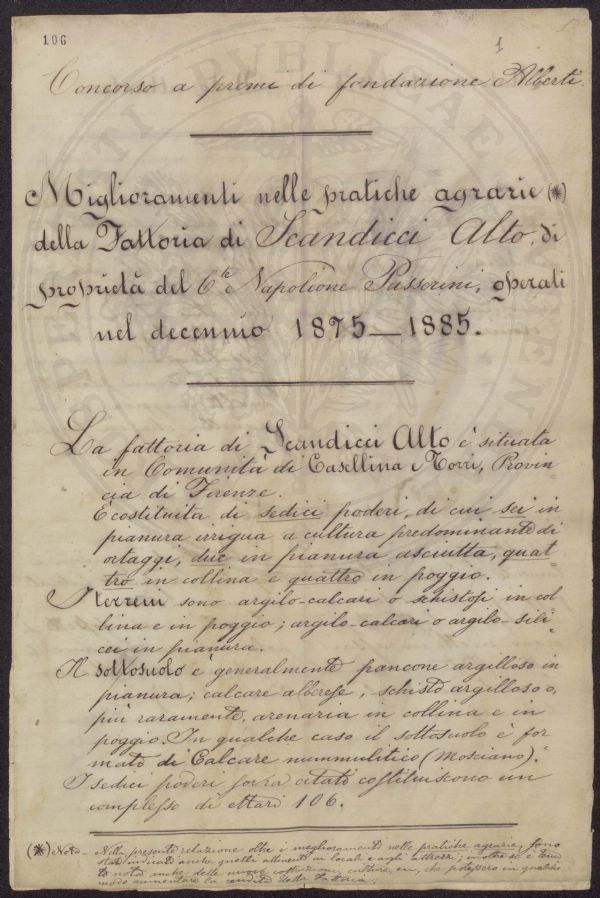 106
1
Concorso a premi di fondazione Alberti.
Miglioramenti nelle pratiche agrarie (*)
della Fattoria di Scandicci Alto, di
proprietà del Cte Napoleone Passerini, operati
nel decennio 1875—1885.
La fattoria di Scandicci Alto è situata
in Comunità di Casellina e Torri, Provin-
cia di Firenze.
È costituita di sedici poderi, di cui sei in
pianura irrigua a cultura predominante di
ortaggi, due in pianura asciutta, quat-
tro in collina e quattro in poggio.
I terreni sono argilo-calcari o schistosi in col
lina e in poggio; argilo-calcari o argilo-sili-
cei in pianura.
Il sottosuolo è generalmente pancone argilloso in
pianura; calcare alberese, schisto argilloso o,
più raramente, arenaria in collina e in
poggio. In qualche caso il sottosuolo è for
mato di Calcare nummulitico (Mosciano).
I sedici poderi sovra citati costituiscono un
complesso di ettari 106.
(*) Nota - Nella presente relazione oltre i miglioramenti nelle pratiche agrarie, sono
stati indicati anche quelli attinenti ai locali e agli attrezzi; inoltre si è tenu
to nota anche delle nuove costruzioni, culture, che potessero in qualche
modo aumentare la rendita della Fattoria.